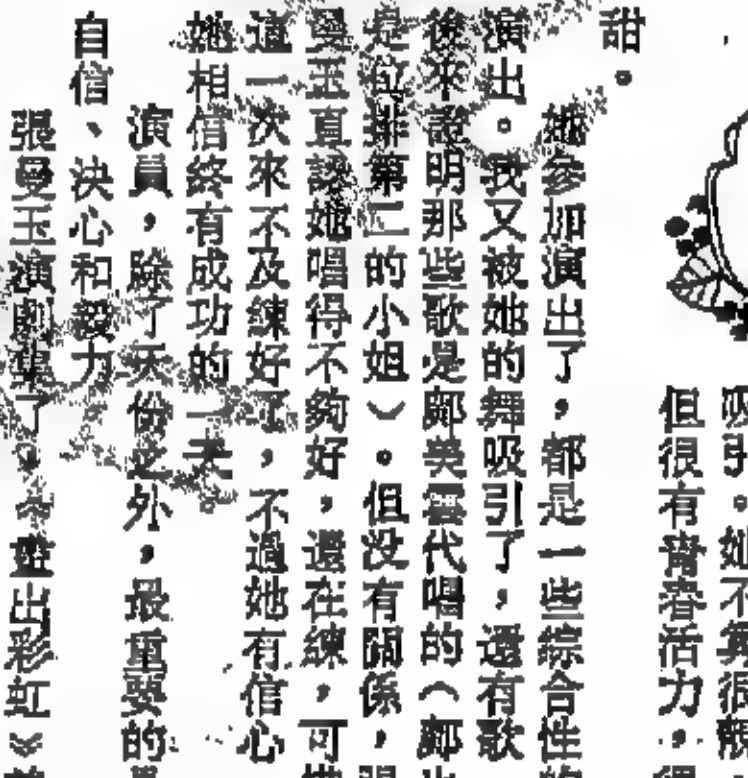 吸引。她不算很靚
但很有青春活力，
甜。
她參加演出了，都是一些綜合性
演出。我又被她的舞吸引了，還有歌
後來說明那些歌是鄺美雲代唱的（鄺
是位排第二的小姐）。但没有關係，
曼玉直認她唱得不夠好，還在練，可
這一次來不及練好了，不過她有信心
她相信終有成功的一天。
演員，除了天份之外，最重要的
自信、決心和毅力
張曼玉演劇集了。《出彩虹》